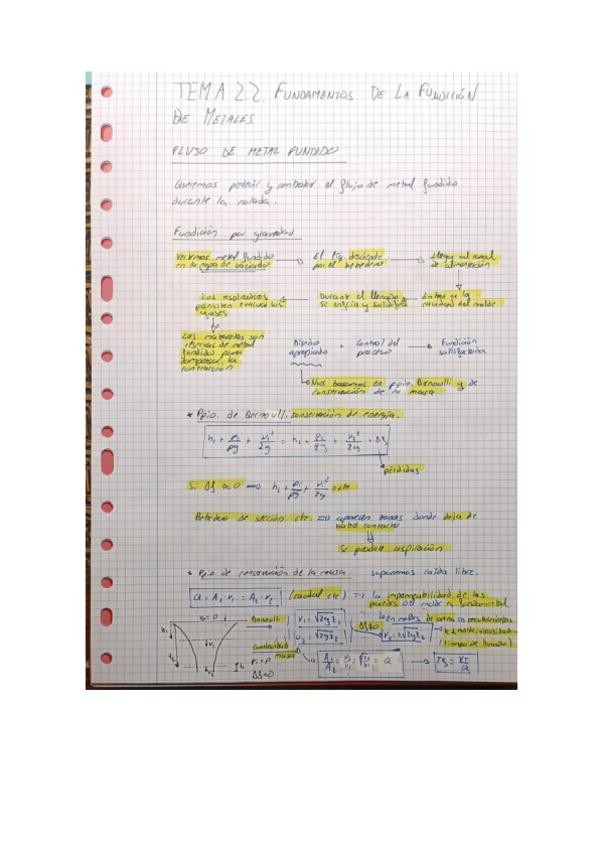 TEMA 2.2. FUNDAMENTOS DE LA FUNDICIÓN
DE METALES
FLUJO DE METAL FUNDIDO
Queremos predecir y controlar el flujo de metal fundido
durante la colada.
Fundición por gravedad
Vertemos metal fundido
en la copa de vaciado
El liq. desciende
por el bebedero
Llega al canal
de alimentación
Entra en la
cavidad del molde
Durante el llenado
se enfría y solidifica
Los respiraderos
permiten evacuar los
gases
Las mazarotas son
reservas de metal
fundido para
compensar la
contracción
Diseño
apropiado
+
Control del
proceso
Fundición
satisfactoria
Nos basamos en ppio. Bernoulli y de
conservación de la masa
* Ppio. de Bernoulli: conservación de energía.
h₁ + p₁/ρg + v₁²/2g = h₂ + p₂/ρg + v₂²/2g + Δf
pérdidas
Si Δf ≈ 0 ⟹ h₁ + p₁/ρg + v₁²/2g = cte
Bebedero de sección cte. ⟹ aparecen zonas donde deja de
haber contacto
Se produce aspiración
* Ppio. de conservación de la masa
suponemos caída libre.
Q = A₁·v₁ = A₂·v₂
(caudal cte) ⟹ la impermeabilidad de las
paredes del molde es fundamental
Bernoulli
v₁ = √2gz₁
v₂ = √2gz₂
Δf≠0
continuidad
masa
Δf=0
(tiempo de llenado)